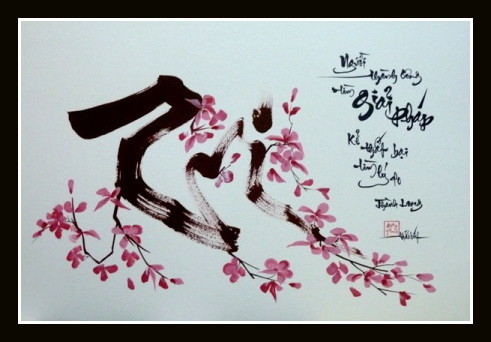 Trí
Người
thành công
tìm giải pháp
Kẻ
thất bại
tìm lý do
Thành Long